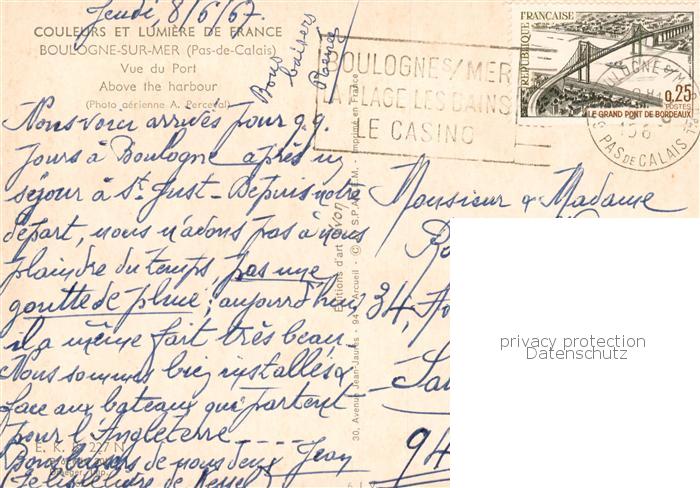 Jeudi, 8/6/67.
COULEURS ET LUMIÈRE DE FRANCE
BOULOGNE-SUR-MER (Pas-de-Calais)
Vue du Port
Above the harbour
(Photo aérienne A. Perceval)
Bons baisers
Nous voici arrivés pour q.q.
jours à Boulogne après un
séjour à St. Just - Depuis notre
départ, nous n'avons pas à nous
plaindre du temps, pas une
goutte de pluie; aujourd'hui
il a même fait très beau.
Nous sommes bien installés
face aux bateaux qui partent
pour l'Angleterre
Bons baisers de nous deux Jean
E. K. 227 N
Editions d'art Yvon
30, Avenue Jean-Jaurès - 94 - Arcueil - © S.P.A.D.E.M. Imprimé en France
BOULOGNE S/MER
LA PLAGE LES BAINS
LE CASINO
REPUBLIQUE FRANÇAISE
0,25
POSTES
LE GRAND PONT DE BORDEAUX
BOULOGNE S/MER
PAS DE CALAIS
Monsieur & Madame
34,
94
privacy protection
Datenschutz